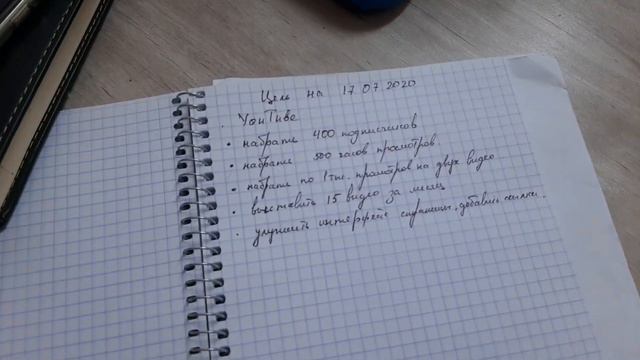 Цель на 17.07.2020
. YouTube
• набрать 400 подписчиков
• набрать 500 часов просмотров
• набрать по 1 тыс. просмотров на двух видео
• выставить 15 видео за месяц
• улучшить интерфейс страницы, добавить ссылки.